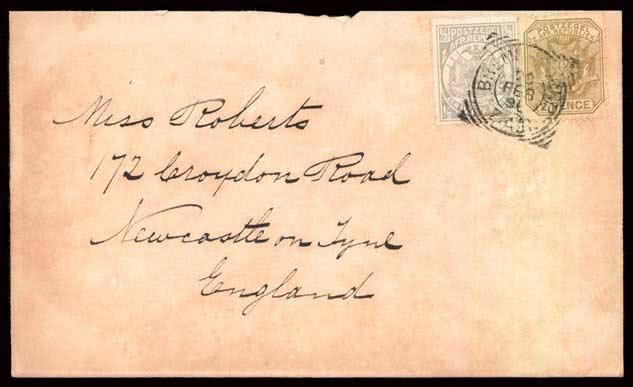 POSTZEGEL
AFR.REP
POSTZEGEL
PENCE
FEB
Miss Roberts
172 Croydon Road
Newcastle on Tyne
England